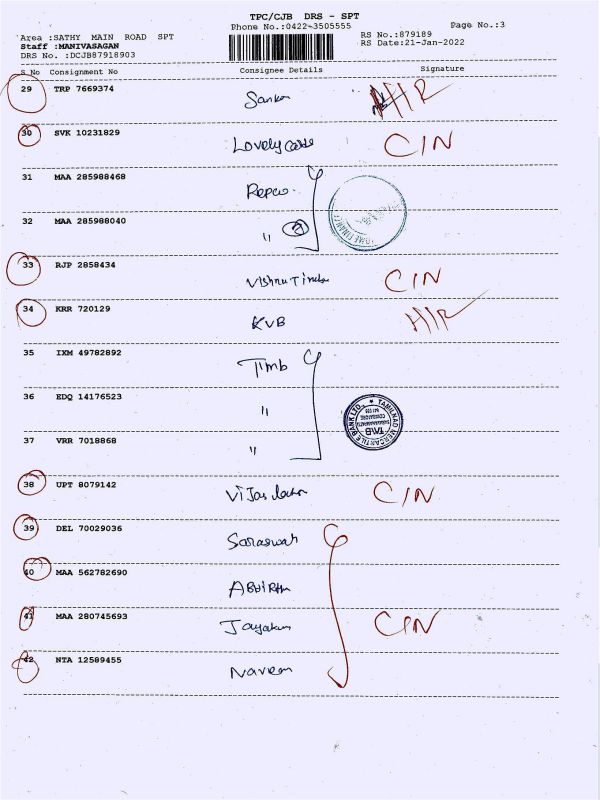 TPC/CJB DRS - SPT
Phone No.:0422-3505555
Page No.:3
Area :SATHY MAIN ROAD SPT
Staff :MANIVASAGAN
DRS No. :DCJB87918903
RS No.:879189
RS Date:21-Jan-2022
S No Consignment No Consignee Details Signature
29 TRP 7669374 H/R
30 SVK 10231829 Lovely cards C/N
31 MAA 285988468 Repco.
32 MAA 285988040 "
HOME FINANCE
33 RJP 2858434 Vishnu Timber C/N
34 KRR 720129 KVB H/R
35 IXM 49782892 Timb
36 EDQ 14176523 "
TAMILNAD MERCANTILE BANK LTD.,
TMB
COIMBATORE
37 VRR 7018868 "
38 UPT 8079142 C/N
39 DEL 70029036 Saraswati
40 MAA 562782690
41 MAA 280745693 Jayakum C/N
42 NTA 12589455 Naveen